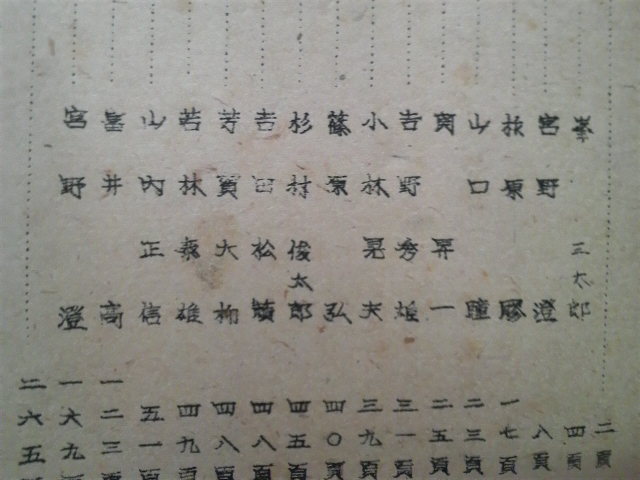 二頁
峯 三太郎 四頁
宮野 澄 八頁
原 一七頁
山口 瞳 二三頁
昇一 二五頁
吉野秀雄 三一頁
小林晃夫 三九頁
篠原 弘 四〇頁
杉村俊太郎 四五頁
吉田松 四八頁
芳賀大 四八頁
若林嘉雄 四九頁
山内正信 五一頁
井 高 一二三頁
宮野 澄 一六九頁
二六五頁